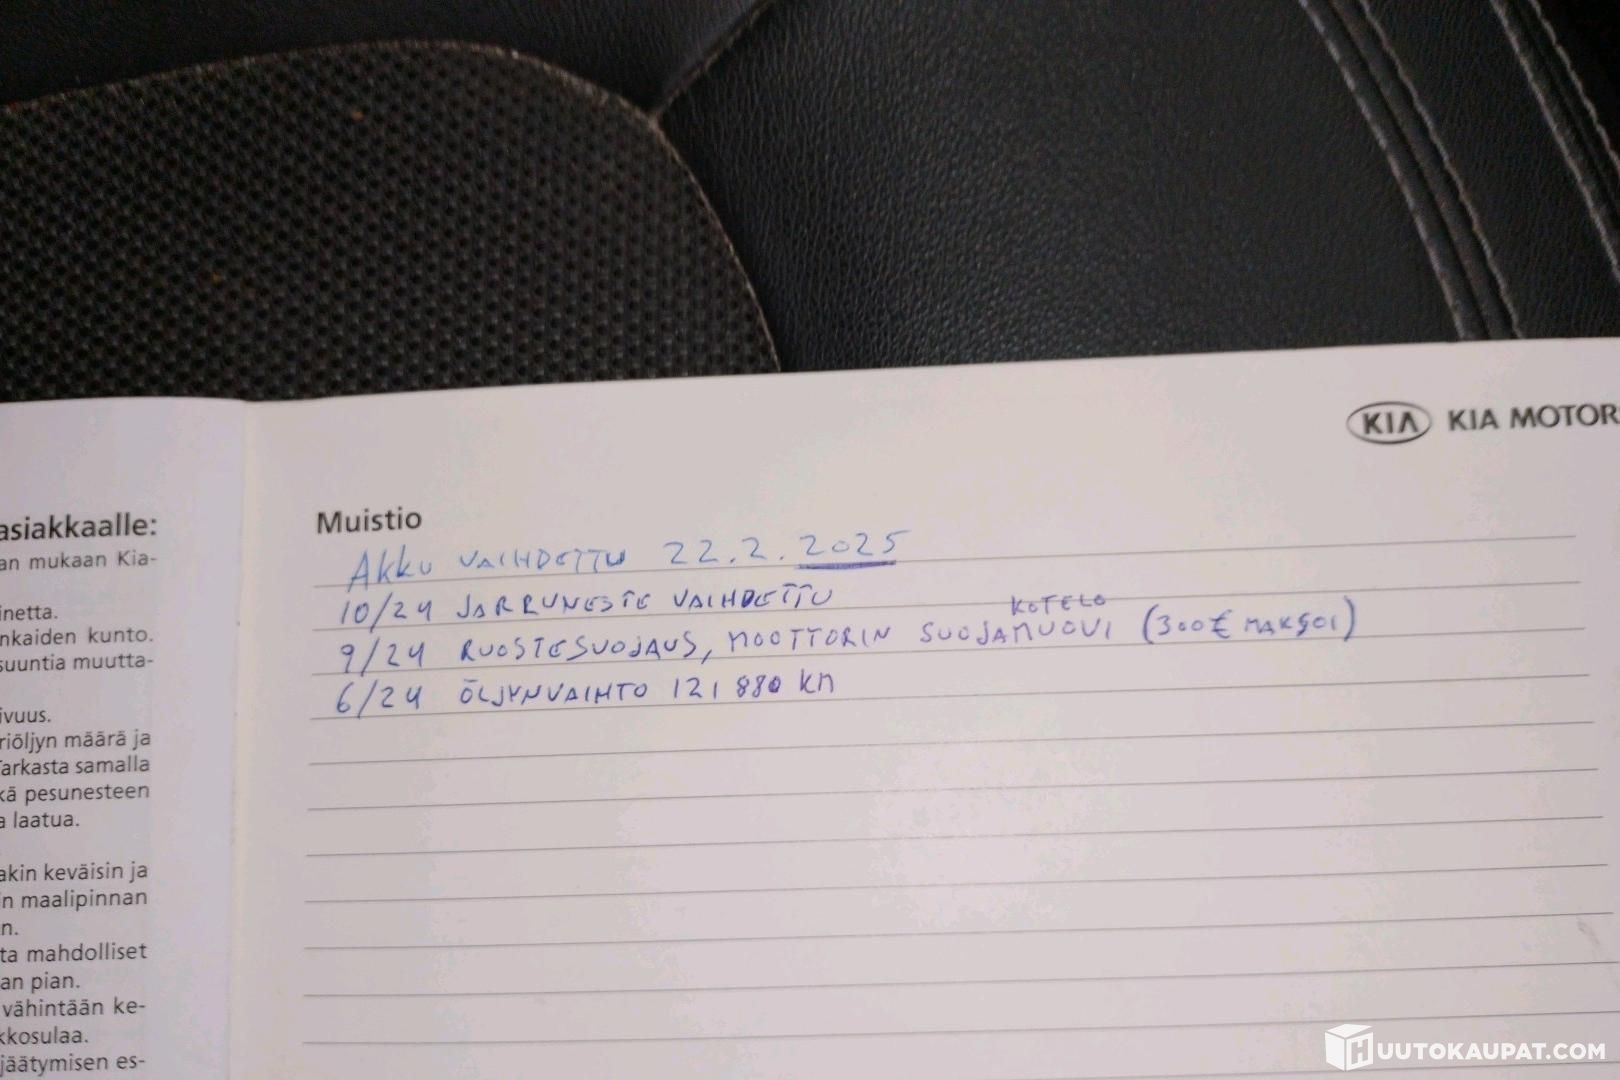 KIA KIA MOTOR
asiakkaalle:
an mukaan Kia-
inetta.
nkaiden kunto.
suuntia muutta-
ivuus.
riöljyn määrä ja
Tarkasta samalla
kä pesunesteen
a laatua.
akin keväisin ja
n maalipinnan
n.
ta mahdolliset
an pian.
vähintään ke-
kkosulaa.
jäätymisen es-
Muistio
Akku VAIHDETTU 22.2.2025
10/24 JARRUNESTE VAIHDETTU
KOTELO
9/24 RUOSTESUOJAUS, MOOTTORIN SUOJAMUOVI (300€ MAKSOI)
6/24 ÖLJYNVAIHTO 121880 KM
HUUTOKAUPAT.COM